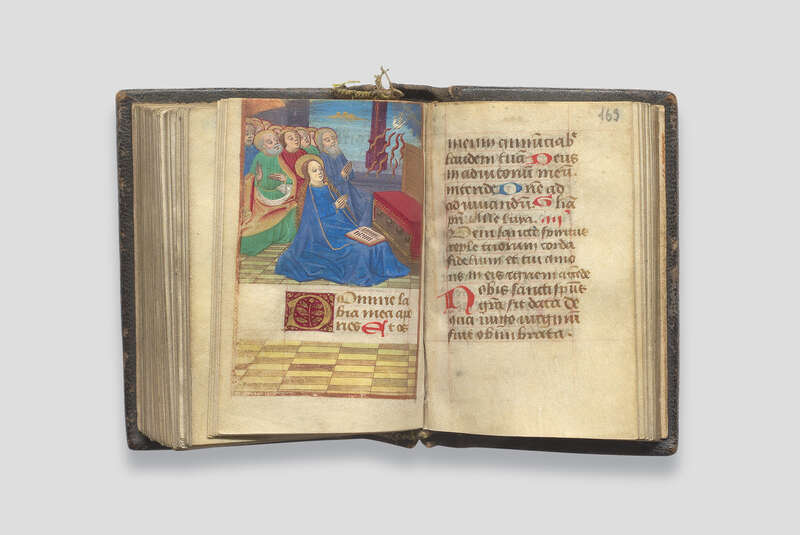 Domine la
bia mea ape
ries Et os
165
meum annūciab'
laudem tuā. Deus
in adiutoriū meū.
intende Dn̄e ad
adiuuandū. Glīa
pr̄i Alleluya. an̄
Veni sancte spiritus
reple tuorum corda
fidelium et tui amo
ris in eis ignem accēde
Nobis sancti spūs
gr̄a sit data de
qua uirgo uirginū
fuit obumbrata.